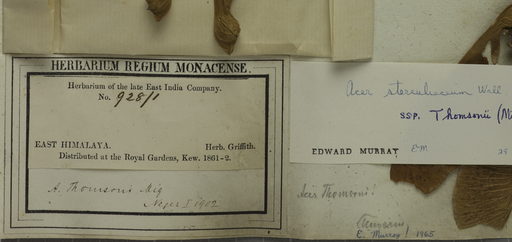 HERBARIUM REGIUM MONACENSE.
Herbarium of the late East India Company.
No. 928/1
EAST HIMALAYA. Herb. Griffith.
Distributed at the Royal Gardens, Kew. 1861-2.
A. Thomsoni Miq
1902
Acer sterculiaceum Wall
SSP. Thomsonii (Mi
EDWARD MURRAY EM
Acer Thomsoni!
E. Murray! 1965